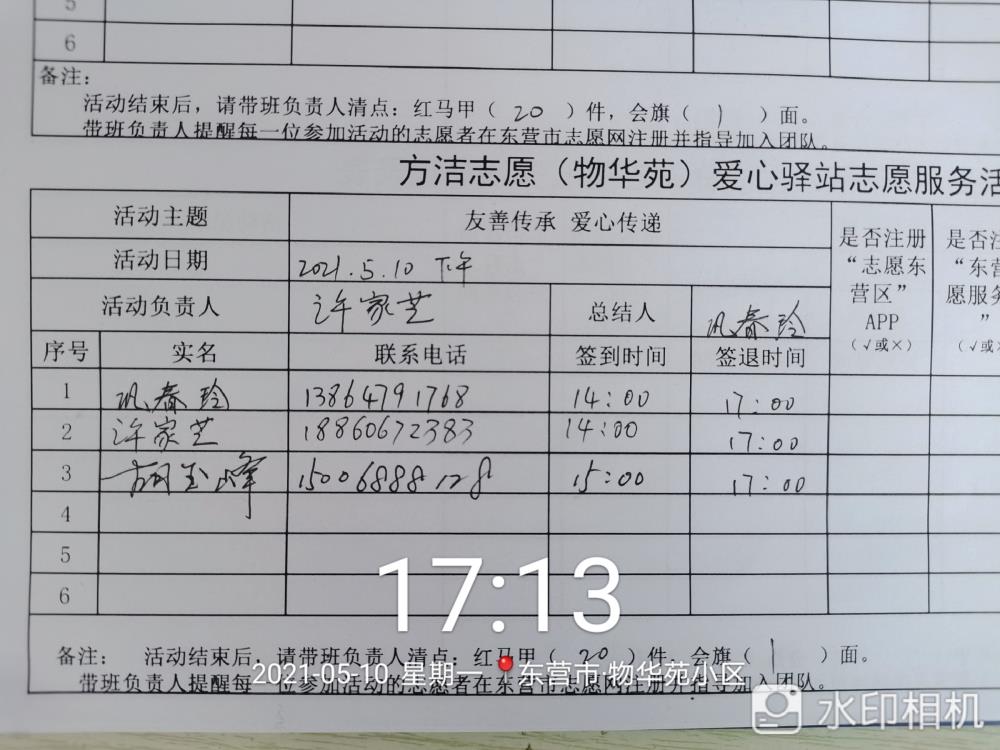 5
6
备注：
活动结束后，请带班负责人清点：红马甲（ 20 ）件，会旗（ 1 ）面。
带班负责人提醒每一位参加活动的志愿者在东营市志愿网注册并指导加入团队。
方洁志愿（物华苑）爱心驿站志愿服务活
活动主题 友善传承 爱心传递
是否注册“志愿东营区”APP（√或×）
活动日期 2021.5.10 下午
活动负责人 许家芝 总结人 巩春玲
序号 实名 联系电话 签到时间 签退时间
1 巩春玲 13864791768 14:00 17:00
2 许家芝 18860672383 14:00 17:00
3 胡玉峰 15006888128 15:00 17:00
4
5
6
17:13
备注： 活动结束后，请带班负责人清点：红马甲（ 20 ）件，会旗（ 1 ）面。
2021-05-10 星期一 东营市·物华苑小区
带班负责人提醒每一位参加活动的志愿者在东营市志愿网注册并指导加入团队。
水印相机